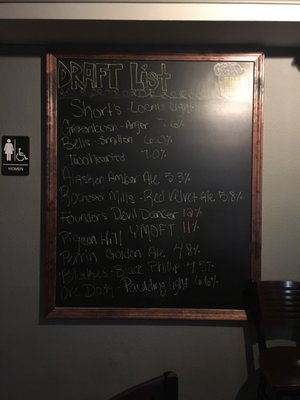 DRAFT List
Short's - Local's Light
Greenbush - Anger 7.6%
Bells - Smitten 6.0%
Two Hearted 7.0%
Alaskan Amber Ale 5.3%
Rochester Mills - Red Velvet Ale 5.8%
Founders Devil Dancer 12%
Pigeon Hill YMDFT 11%
Perrin Golden Ale 4.8%
Blakes - Black Phillip
Dark 6.6%
WOMEN